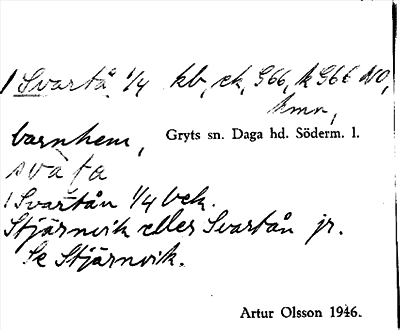 1 Svartå, 1/4 kb, ck, G66, k G66 NO,
hmn,
barnhem, Gryts sn. Daga hd. Söderm. l.
svàṭa
1 Svartån 1/4 bek.
Stjärnvik eller Svartån jr.
Se Stjärnvik.
Artur Olsson 1946.